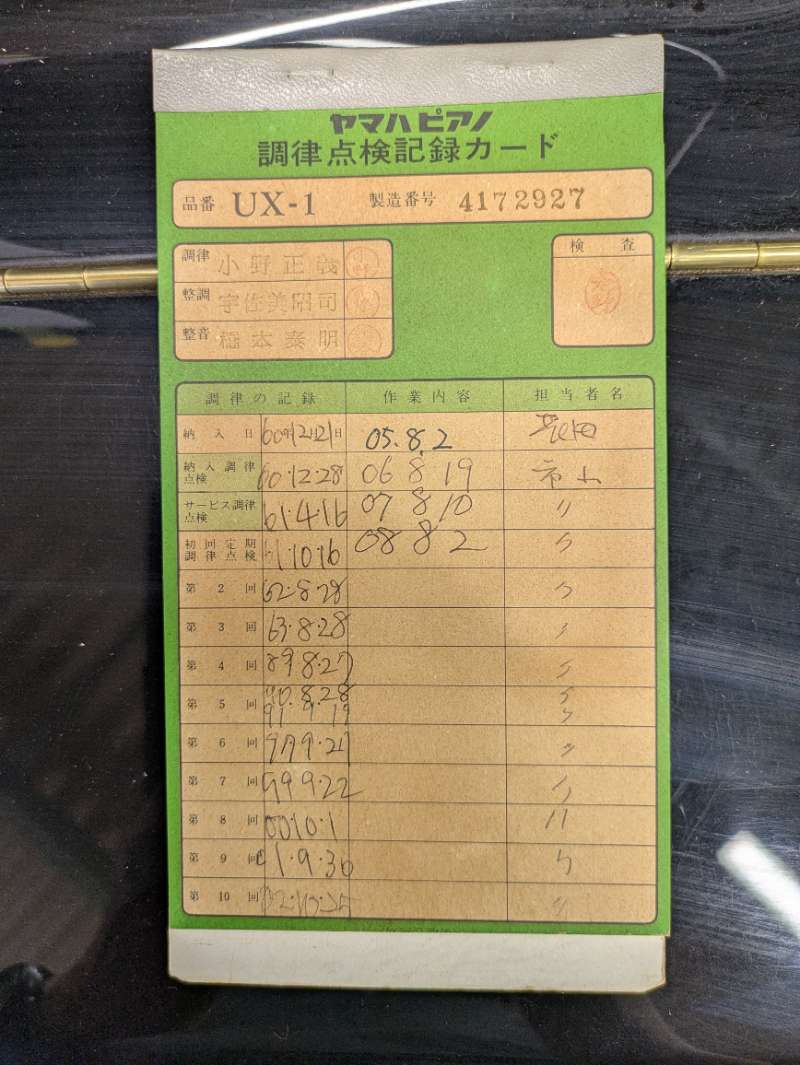 ヤマハピアノ
調律点検記録カード
品番 UX-1 製造番号 4172927
調律 小野正義
検査
整調 宇佐美昭司
整音 稲本泰明
調律の記録 作業内容 担当者名
納入日 60年12月21日 05.8.2
納入調律点検 60.12.28 06 8 19 市山
サービス調律点検 61.4.16 07 8 10 〃
初回定期調律点検 61.10.16 08 8 2 〃
第2回 62.8.28 〃
第3回 63.8.28 〃
第4回 89 8.27 〃
第5回 90.8.28 〃
91 9 19 〃
第6回 〃
第7回 99 9.22 〃
第8回 00.10.1 〃
第9回 01.9.30 〃
第10回 〃